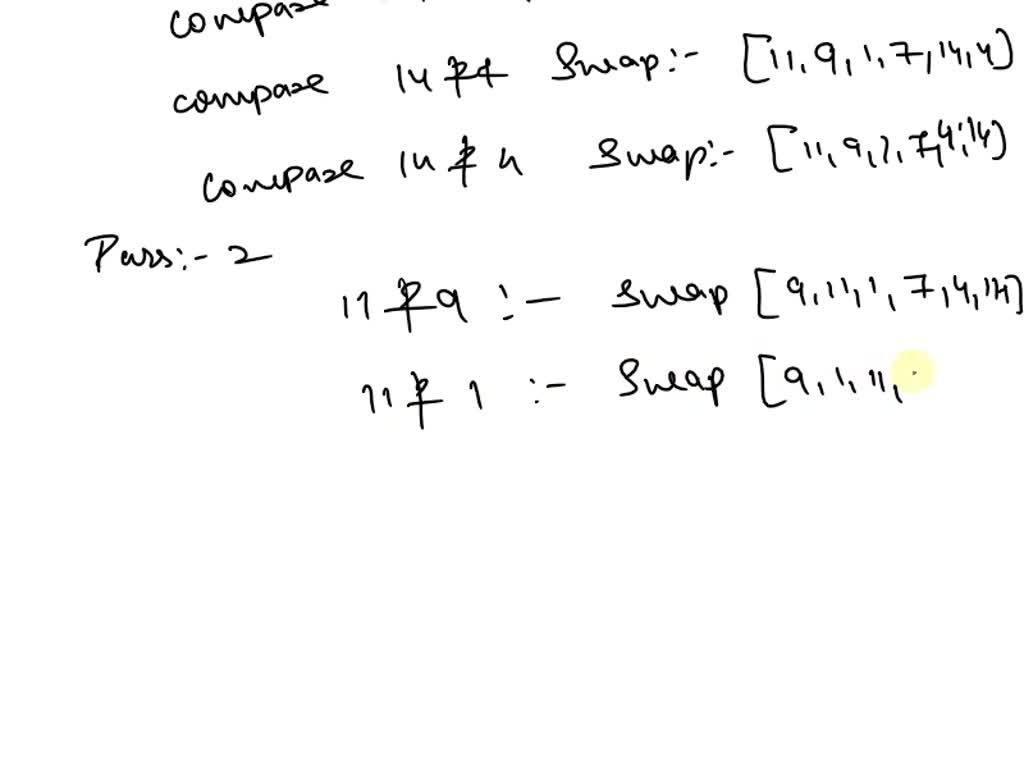 compare
compare 14 & 4 Swap:- [11, 9, 1, 7, 14, 4]
compare 14 & 4 Swap:- [11, 9, 1, 7, 4, 14]
Pass:- 2
11 & 9 :- Swap [9, 11, 1, 7, 4, 14]
11 & 1 :- Swap [9, 1, 11,